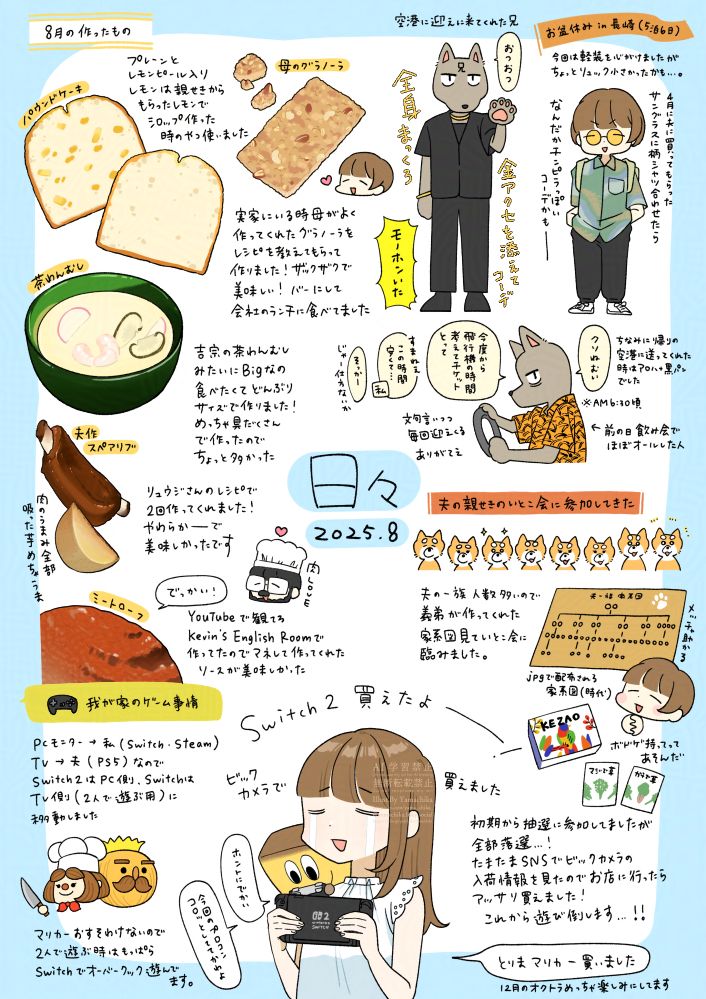 8月の作ったもの
パウンドケーキ
プレーンと
レモンピール入り
レモンは親せきから
もらったレモンで
シロップ作った
時のやつ使いました
母のグラノーラ
実家にいる時母がよく
作ってくれたグラノーラを
レシピを教えてもらって
作りました!ザックザクで
美味しい!バーにして
会社のランチに食べてました
茶わんむし
吉宗の茶わんむし
みたいにBigなの
食べたくてどんぶり
サイズで作りました!
めっちゃ具だくさん
で作ったので
ちょっと多かった
夫作
スペアリブ
リュウジさんのレシピで
2回作ってくれました!
やわらかーーで
美味しかったです
肉のうまみ全部
吸った芋めちゃうま
肉LOVE
ミートローフ
でっかい!
YouTubeで観てる
Kevin's English Roomで
作ってたのでマネして作ってくれた
ソースが美味しかった
空港に迎えに来てくれた兄
おつおつ
全身まっくろ
金アクセを添えて
コーデ
モーホンいた
お盆休み in 長崎(5泊6日)
今回は軽装を心がけましたが
ちょっとリュック小さかったかも…。
4月に夫に買ってもらった
サングラスに柄シャツ合わせたら
なんだかチンピラっぽい
コーデかもーー
ちなみに帰りの
空港に送ってくれた
時はアロハ+黒パン
でした
※AM6:30頃
←前の日飲み会で
ほぼオールした人
クソねむい
今度から
飛行機の時間
考えてチケット
とって
すまねぇ
この時間
安くて…
私
そっかー
じゃー仕方ないか
文句言いつつ
毎回迎えくる
ありがてえ
日々
2025.8
夫の親せきのいとこ会に参加してきた
夫の一族人数多いので
義弟が作ってくれた
家系図見ていとこ会に
臨みました。
夫一族 家系図
メッチャ助かる
jpgで配布される
家系図(時代)
KEZAO
ボドゲ持ってって
あそんだ
我が家のゲーム事情
PCモニター→私(Switch・Steam)
TV→夫(PS5)なので
Switch2はPC側、Switchは
TV側(2人で遊ぶ用)に
移動しました
マリカーおすそわけないので
2人で遊ぶ時はもっぱら
Switchでオーバークック遊んで
ます。
Switch2 買えたよ
ビック
カメラで
買えました
ホントにでかい
今回のプロコン
コロッとしててかわよ
AI学習禁止
無断転載禁止
Illust.By Yamachika
SWITCH
初期から抽選に参加してましたが
全部落選…!
たまたまSNSでビックカメラの
入荷情報を見たのでお店に行ったら
アッサリ買えました!
これから遊び倒します…!!
とりま マリカー 買いました
12月のオクトラめっちゃ楽しみにしてます